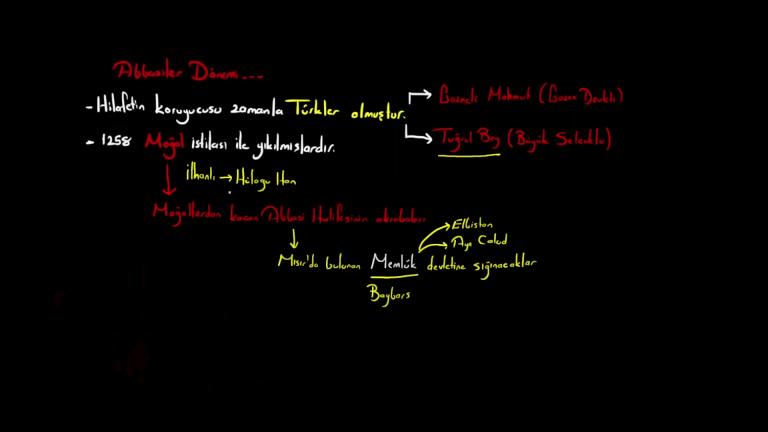 Abbasiler Dönemi...
- Hilafetin koruyucusu zamanla Türkler olmuştur.
→ Gazneli Mahmut (Gazne Devleti)
→ Tuğrul Bey (Büyük Selçuklu)
- 1258 Moğol istilası ile yıkılmışlardır.
İlhanlı → Hülagu Han
Moğollardan kaçan Abbasi Halifesinin akrabaları
→ Elbistan
→ Ayn Calud
Mısır'da bulunan Memlük devletine sığınacaklar
Baybars